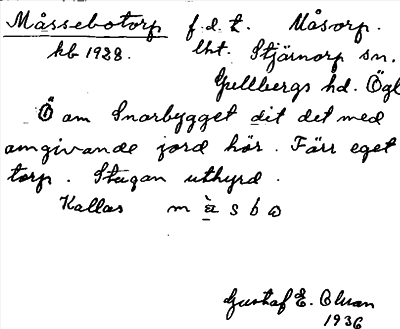 Måssebotorp f.d.t. Måsorp.
kb 1928. lht. Stjärnorp sn.
Gullbergs hd. Ögl
Ö om Snorbygget dit det med
omgivande jord hör. Förr eget
torp. Stugan uthyrd.
Kallas m à s b o
Gustaf E. Olman
1936